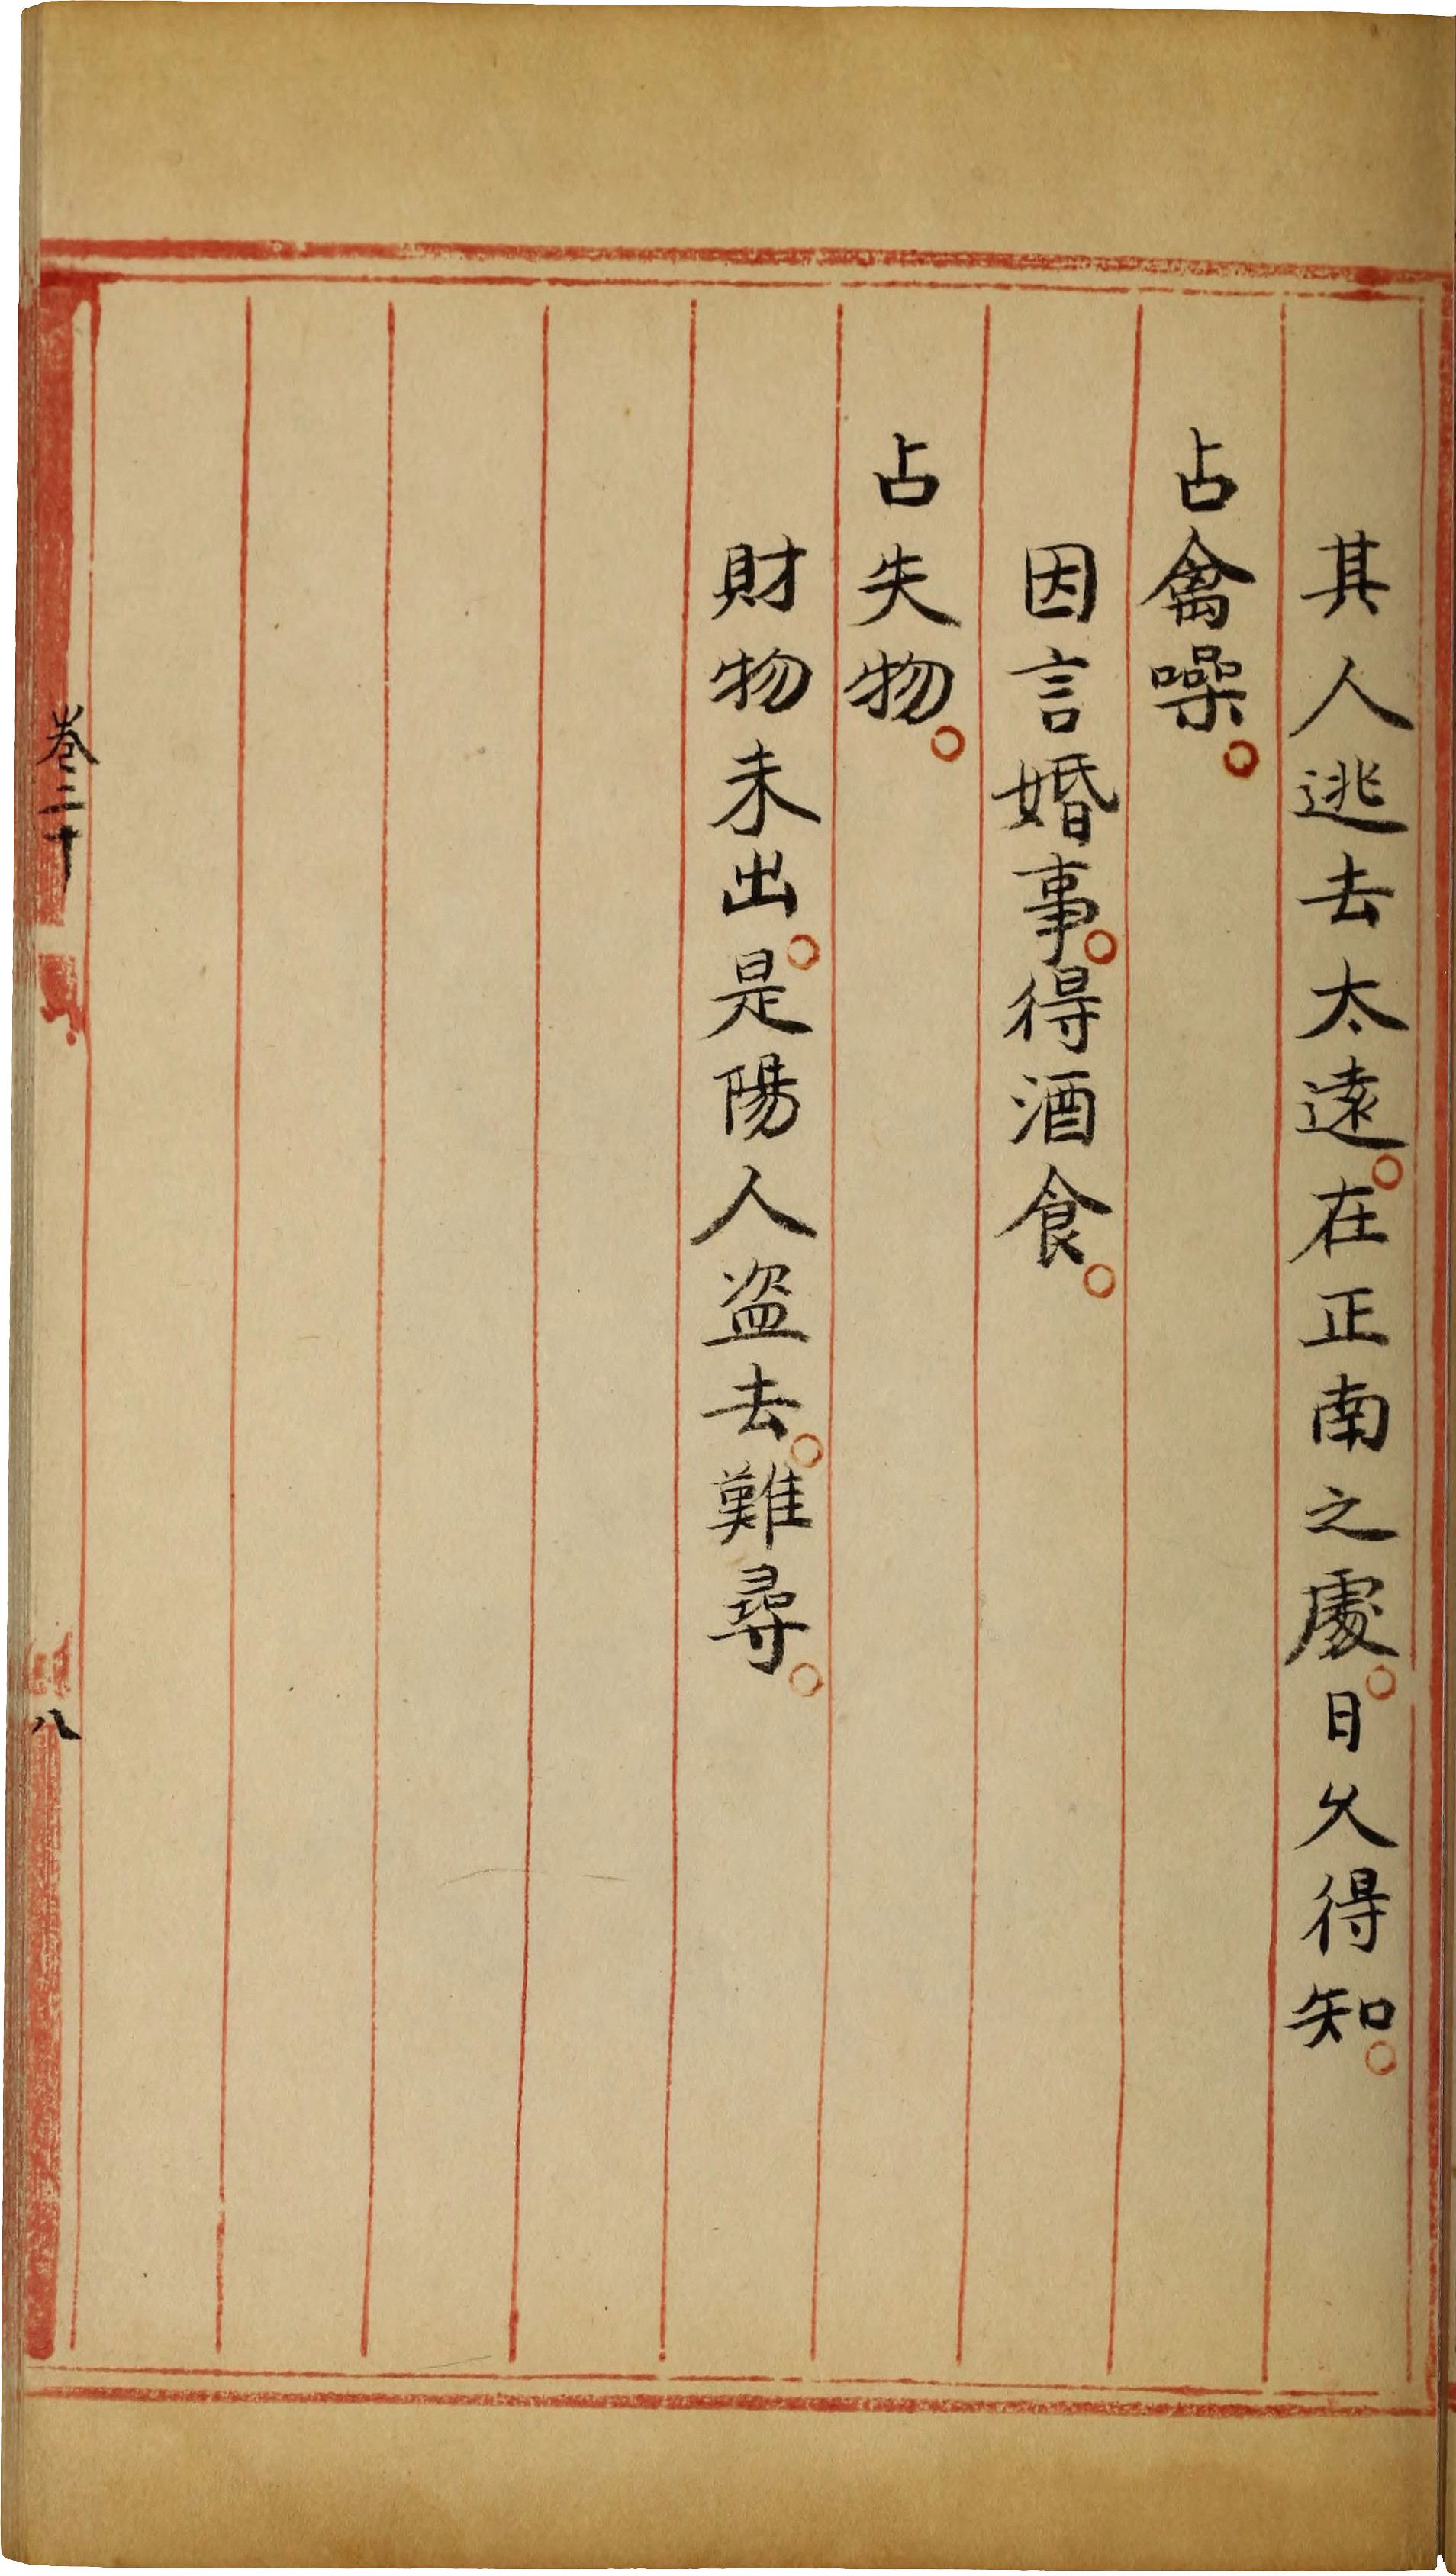 其人逃去太遠。在正南之處。日久得知。
占禽噪。
因言婚事。得酒食。
占失物。
財物未出。是陽人盗去。難尋。
卷二十
八